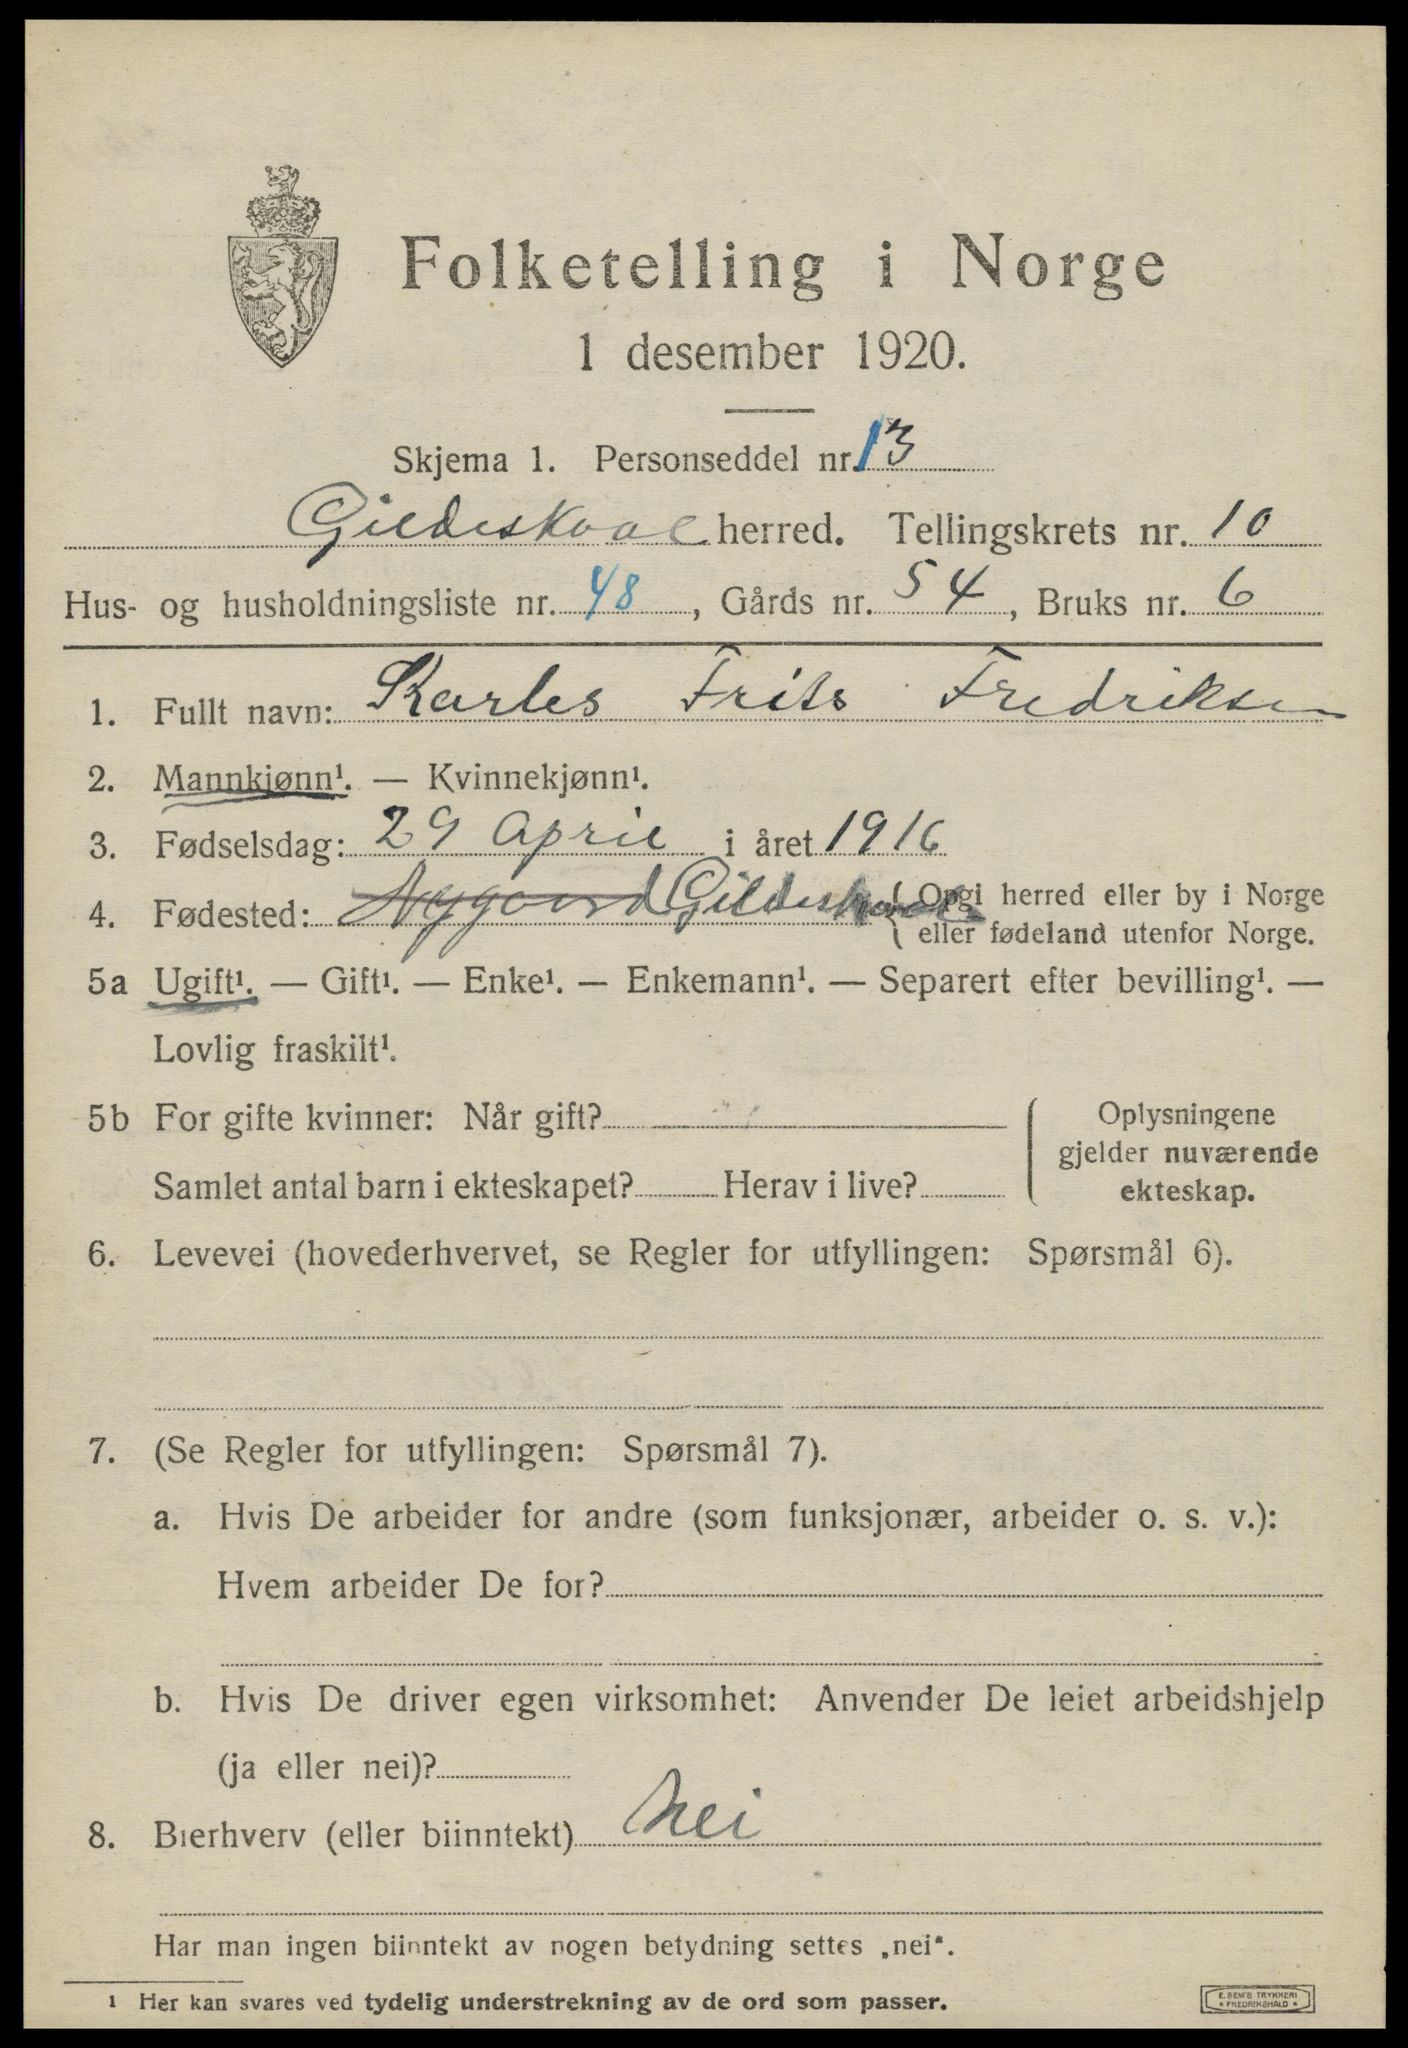 Folketelling i Norge
1 desember 1920.
Skjema 1. Personseddel nr. 13
Gildeskaal herred. Tellingskrets nr. 10
Hus- og husholdningsliste nr. 48, Gårds nr. 54, Bruks nr. 6
1. Fullt navn: Karles Frits Fredriksen
2. Mannkjønn¹. — Kvinnekjønn¹.
3. Fødselsdag: 29 April i året 1916
4. Fødested: Nygaard Gildeskaal { Opgi herred eller by i Norge
eller fødeland utenfor Norge.
5a Ugift¹. — Gift¹. — Enke¹. — Enkemann¹. — Separert efter bevilling¹. —
Lovlig fraskilt¹.
5b For gifte kvinner: Når gift?
Samlet antal barn i ekteskapet? Herav i live?
Oplysningene
gjelder nuværende
ekteskap.
6. Levevei (hovederhvervet, se Regler for utfyllingen: Spørsmål 6).
7. (Se Regler for utfyllingen: Spørsmål 7).
a. Hvis De arbeider for andre (som funksjonær, arbeider o. s. v.):
Hvem arbeider De for?
b. Hvis De driver egen virksomhet: Anvender De leiet arbeidshjelp
(ja eller nei)?
8. Bierhverv (eller biinntekt) Nei
Har man ingen biinntekt av nogen betydning settes „nei“.
1 Her kan svares ved tydelig understrekning av de ord som passer.
E. SEM'S TRYKKERI
* FREDRIKSHALD *